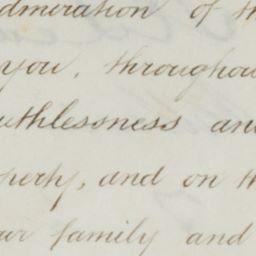 dmiration of th
you, throughou
uthlessness and
perty, and on th
ur family and